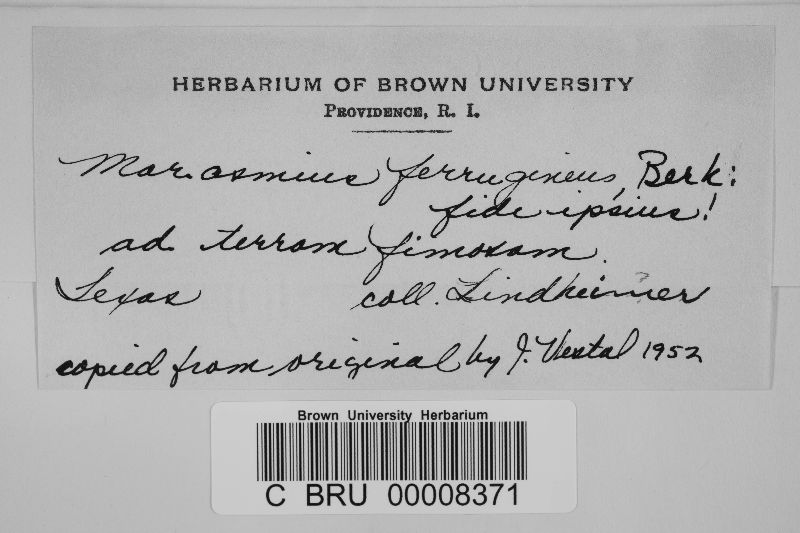 HERBARIUM OF BROWN UNIVERSITY
PROVIDENCE, R. I.
Marasmius ferrugineus, Berk:
fide ipsius!
ad terram fimosam.
?
Texas coll. Lindheimer
copied from original by J. Vestal 1952
Brown University Herbarium
C BRU 00008371